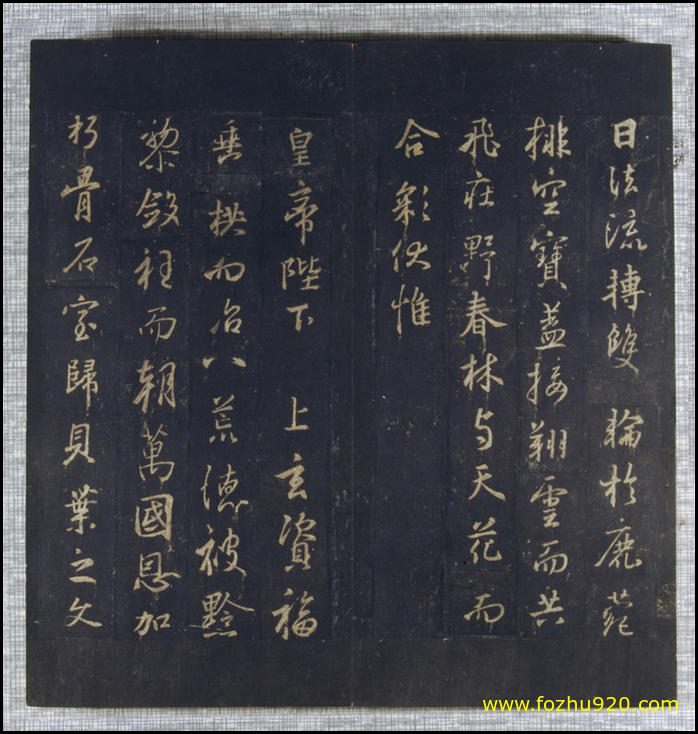 日法流轉雙輪於鹿菀
排空寶蓋接翔雲而共
飛莊野春林与天花而
合彩伏惟
皇帝陛下 上玄資福
垂拱而治八荒德被黔
黎斂衽而朝萬國恩加
朽骨石室歸貝葉之文
www.fozhu920.com